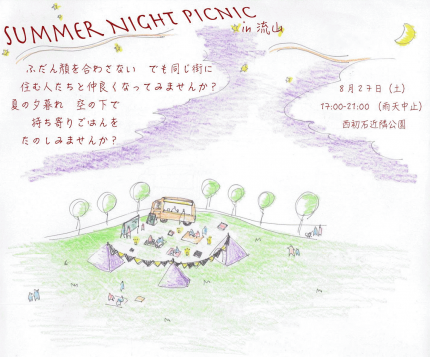 SUMMER NIGHT PICNIC in 流山
ふだん顔を合わさない でも同じ街に
住む人たちと仲良くなってみませんか？
夏の夕暮れ 空の下で
持ち寄りごはんを
たのしみませんか？
8月27日（土）
17:00-21:00 （雨天中止）
西初石近隣公園